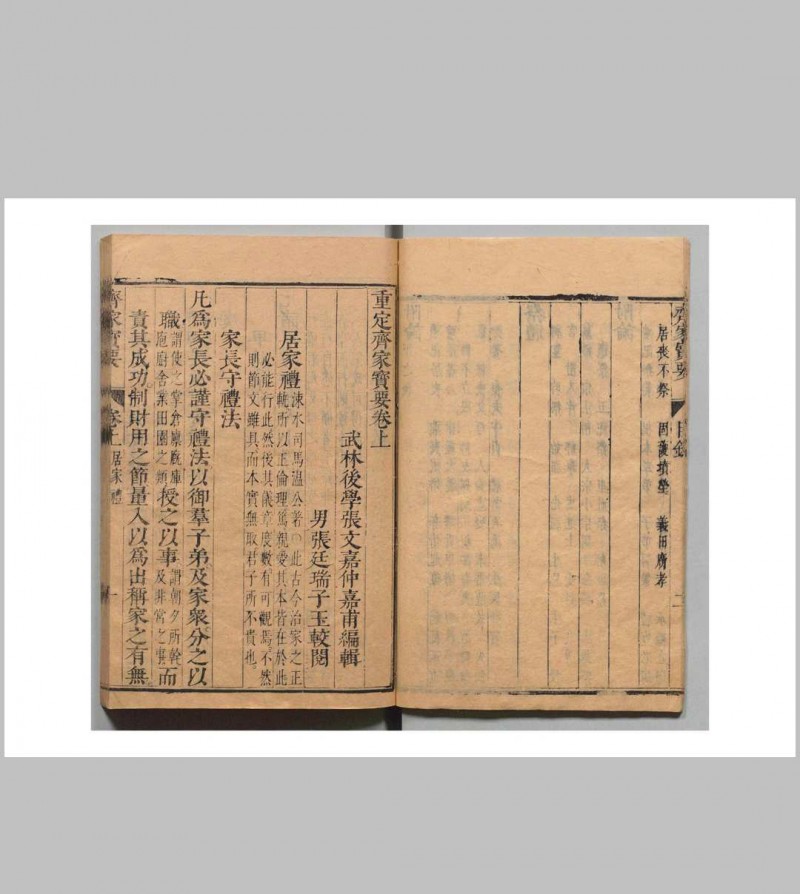 齊家寶要
目錄
二
居喪不祭 因葬墳塋 義田廣孝
重定齊家寶要卷上
武林後學張文嘉仲嘉甫編輯
男張廷瑞子玉較閱
居家禮涑水司馬溫公著○此古今治家之正
軌所以正倫理篤親愛其本皆在於此
必能行此然後其儀章度數有可觀焉不然
則節文雖具而本實無取君子所不貴也
家長守禮法
凡為家長必謹守禮法以御羣子弟及家衆分之以
職謂使之掌倉廩廐庫
庖廚舍業田園之類授之以事謂朝夕所幹
及非常之事而
責其成功制財用之節量入以為出稱家之有無
齊家寶要
卷上 居家禮
一